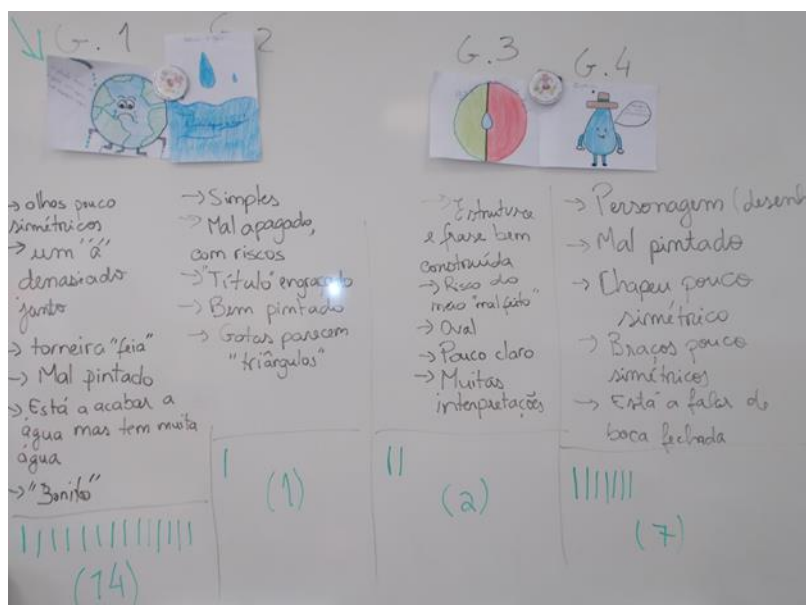 G. 1
→ olhos pouco
simétricos
→ um "á"
demasiado
junto
→ torneira "feia"
→ Mal pintado
→ Está a acabar a
água mas tem muita
água
→ "Bonito"
(14)
2
→ Simples
→ Mal apagado,
com riscos
→ "Título" engraçado
→ Bem pintado
→ Gotas parecem
"triângulos"
(1)
G. 3
→ Estrutura
e frase bem
construída
→ Risco do
meio "mal feito"
→ Oval
→ Pouco claro
→ Muitas
interpretações
(2)
G. 4
→ Personagem (desenh
→ Mal pintado
→ Chapeu pouco
simétrico
→ Braços pouco
simétricos
→ Está a falar de
boca fechada
(7)